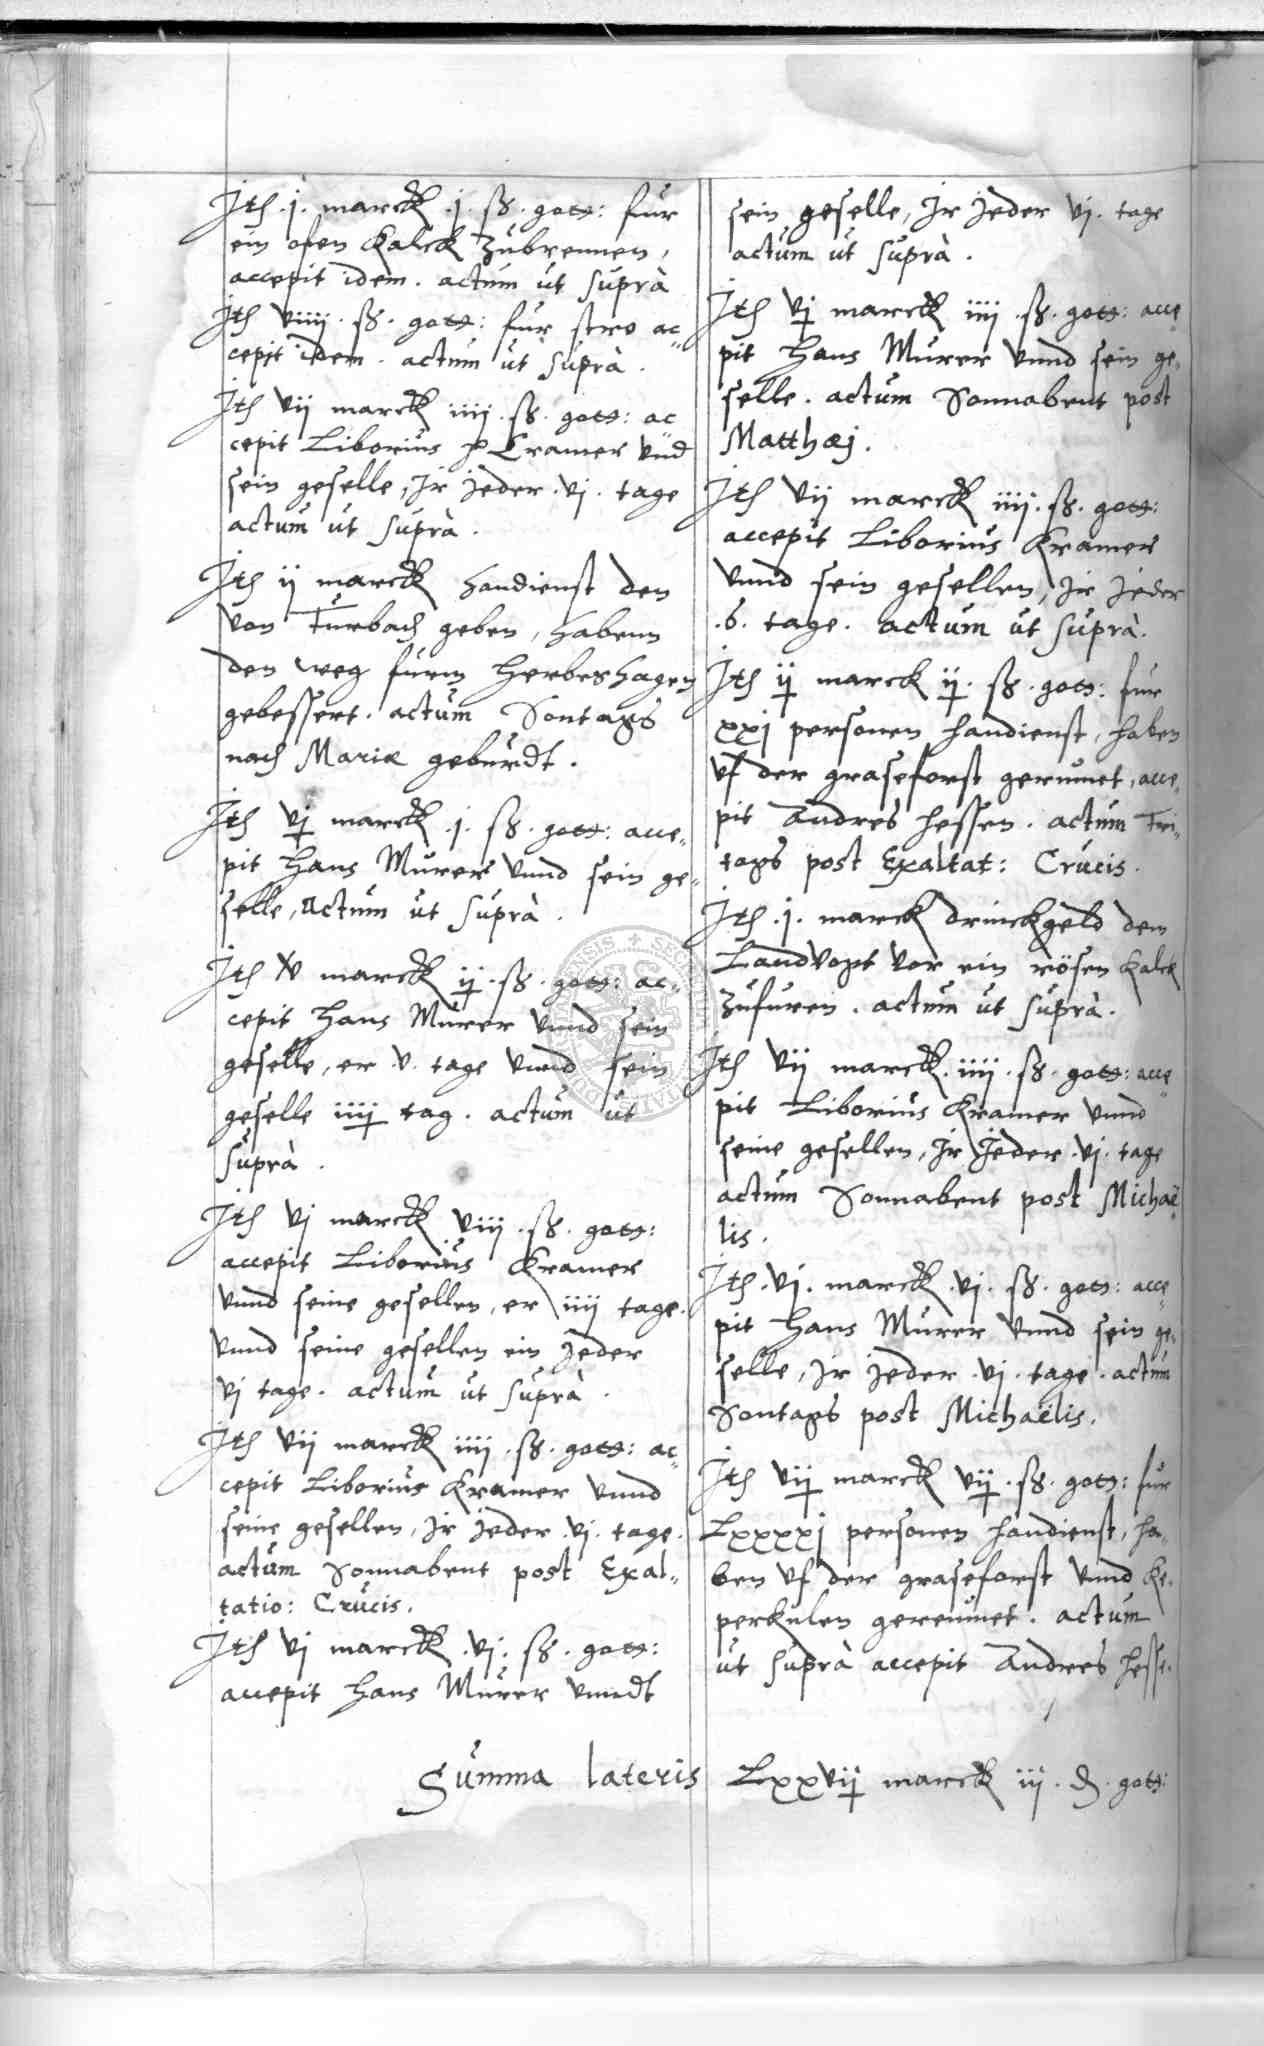 Jtē .j. marck .j. sß. gott: fur
ein ofen Kalck zübrennen,
accepit idem. actum ut süprà
Jtē viiij. sß. gott: für stro ac„
cepit idem. actum üt süprà.
Jtē vij marck iiij. sß. gott: ac
cepit Liborius Kramer vnd
sein geselle, Jr jeder .vj. tage
actum üt süprà.
Jtē ij marck handienst den
von Türbach geben, habenn
den weg fürm Herbershagen
gebessert. actüm Sontags
nach Mariæ gebürdt.
Jtē vj marck .j. sß. gott: acce„
pit Hans Mürer vnnd sein ge„
selle, Actum ut süprà.
Jtē xv marck ij. sß. gott: ac„
cepit Hans Mürer vnnd sein
geselle, er .v. tage vnnd sein
geselle iiij tag. actüm üt
süprà.
Jtē vj marck viij. sß. gott:
accepit Liborius Kramer
vnnd seine gesellen, er iiij tage.
vnnd seine gesellen ein jeder
vj tage. actüm ut süprà.
Jtē vij marck iiij. sß. gott: ac„
cepit Liborius Kramer vnnd
seine gesellen, Jr jeder .vj. tage.
actüm Sonnabent post Exal„
tatio: Crücis.
Jtē vj marck .vj. sß. gott:
accepit Hans Mürer vnndt
sein geselle, Jr jeder vj. tage
actüm üt süprà.
Jtē vj marck iiij. sß. gott: acce„
pit Hans Mürer vnnd sein ge„
selle. actüm Sonnabent post
Matthæj.
Jtē vij marck iiij. sß. gott:
accepit Liborius Kramer
vnnd sein gesellen, Jr jeder
.6. tage. actüm üt süprà.
Jtē ij marck ij. sß. gott: für
xxj personen handienst, haben
vf der graseforst gerümet, acce„
pit Andres Hessen. actüm Fri„
tags post Exaltat: Crücis.
Jtē .j. marck drinckgeld dem
Landvogt vor ein rösen Kalck
züfüren. actüm üt süprà.
Jtē vij marck. iiij. sß. gott: acce„
pit Liborius Kramer vnnd
seine gesellen, Jr jeder .vj. tage
actüm Sonnabent post Michaë„
lis.
Jtē .vj. marck .vj. sß. gott: acce„
pit Hans Mürer vnnd sein ge„
selle, Jr jeder .vj. tage. actüm
Sontags post Michaëlis.
Jtē vij marck vij. sß. gott: für
Lxxxxj personen handienst, ha„
ben vf der graseforst vnnd Ke„
perkulen gereümet. actüm
üt süprà accepit Andres Hesse.
Sümma lateris Lxxvij marck iij. ₰. gott: